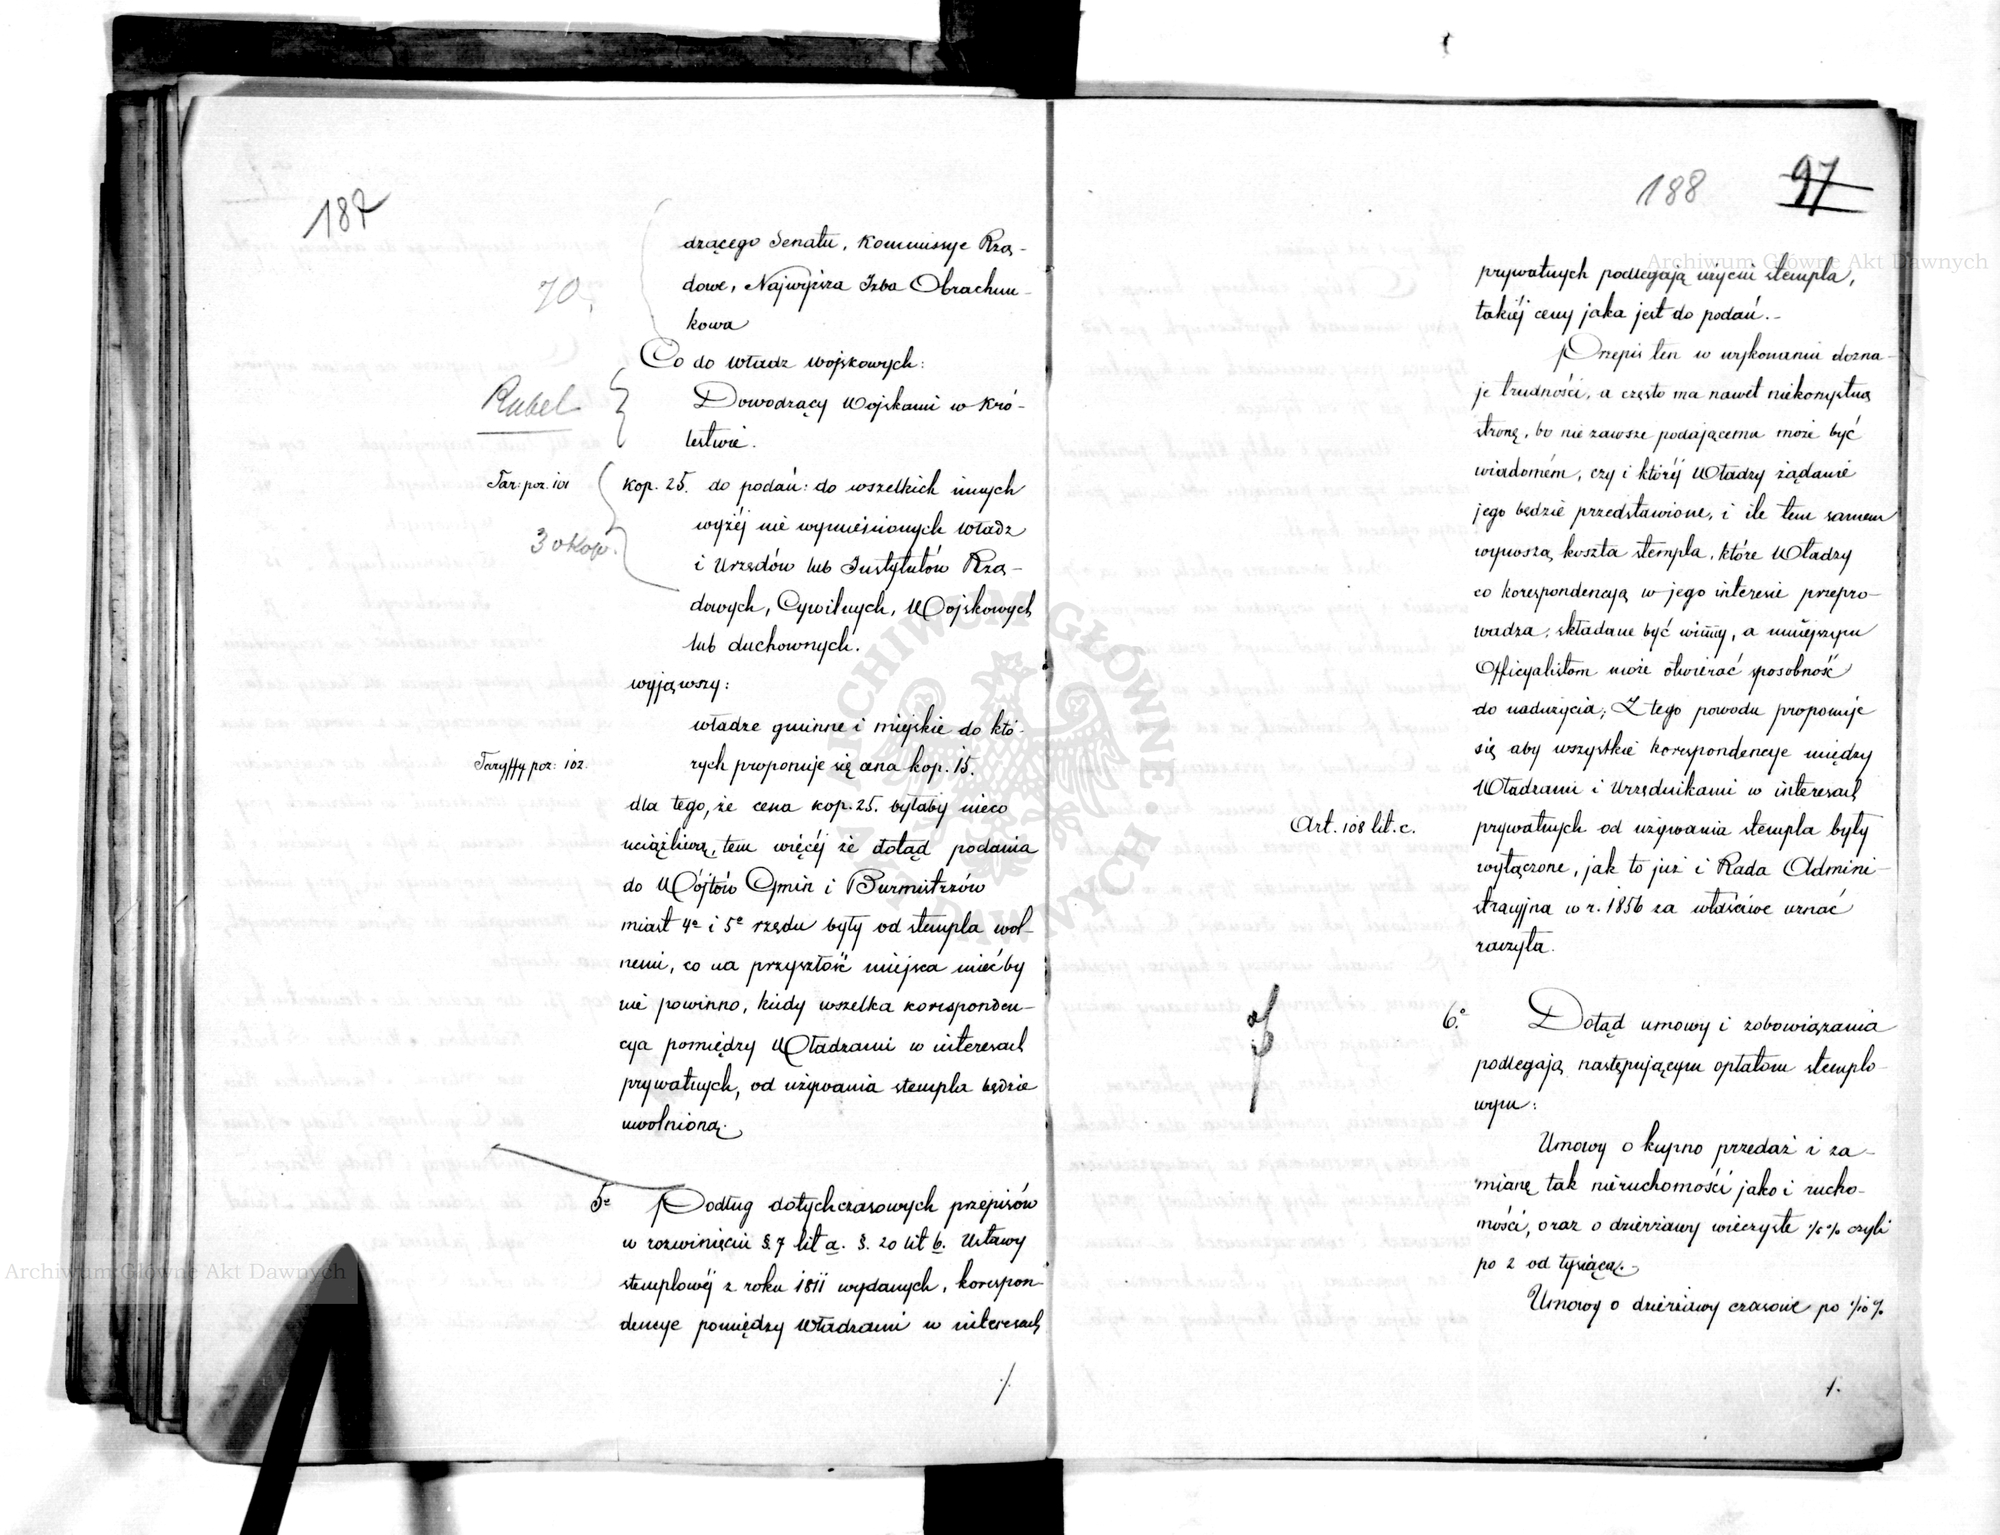 187
dzącego Senatu, Kommissye Rzą-
70,
dowe, Najwyższa Izba Obrachun-
kowa
Co do Władz wojskowych:
Rubel
Dowodzący Wojskami w Kró-
lestwie.
Tar: poz. 101
kop. 25. do podań: do wszelkich innych
wyżéj nie wymienionych Władz
30 kop.
i Urzędów lub Instytutów Rzą-
dowych, Cywilnych, Wojskowych
lub duchownych.
wyjąwszy:
władze gminne i miejskie do któ-
Taryffy poz: 102.
rych proponuje się cena kop. 15.
dla tego, że cena kop. 25. byłaby nieco
uciążliwą, tem więcéj że dotąd podania
do Wójtów Gmin i Burmistrzów
miast 4e i 5e rzędu były od stempla wol-
nemi, co na przyszłość miejsca miećby
nie powinno, kiedy wszelka koresponden-
cya pomiędzy Władzami w interesach
prywatnych, od używania stempla będzie
uwolnioną.
5e Podług dotychczasowych przepisów
w rozwinięciu §. 7 lit a. §. 20 lit b. Ustawy
stemplowéj z roku 1811 wydanych, korespon-
dencye pomiędzy Władzami w interesach
/.
188 97
prywatnych podlegają użyciu stempla,
takiéj ceny jaka jest do podań.-
Przepis ten w wykonaniu dozna-
je trudności, a często ma nawet niekorzystną
stronę, bo nie zawsze podającemu może być
wiadomém, czy i któréj Władzy żądanie
jego będzie przedstawione, i ile tem samem
wynoszą koszta stempla, które Władzy
co korespondencyą w jego interesie przepro-
wadza, składane być winny, a mniejszym
Officyalistom może otwierać sposobność
do nadużycia; Z tego powodu proponuje
się aby wszystkie korespondencye między
Władzami i Urzędnikami w interesach
Art. 108 lit. c.
prywatnych od używania stempla były
wyłączone, jak to już i Rada Admini-
stracyjna w r. 1856 za właściwe uznać
raczyła.
6.o Dotąd umowy i zobowiązania
podlegają następującym opłatom stemplo-
wym:
Umowy o kupno przedaż i za-
mianę tak nieruchomości jako i rucho-
mości, oraz o dzierżawy wieczyste 1/5 % czyli
po 2 od tysiąca.-
Umowy o dzierżawy czasowe po 1/10 %
/.
Archiwum Główne Akt Dawnych
Archiwum Główne Akt Dawnych
ARCHIWUM GŁÓWNE AKT DAWNYCH